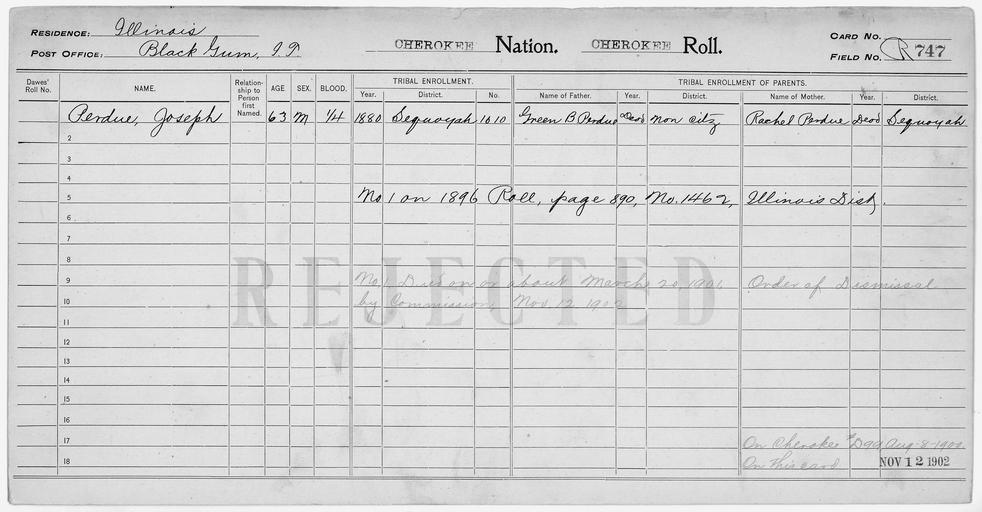 RESIDENCE: Illinois
POST OFFICE: Black Gum, I.T.
CHEROKEE Nation. CHEROKEE Roll.
CARD NO.
FIELD NO. R 747
Dawes' Roll No. NAME. Relationship to Person first Named. AGE SEX. BLOOD. TRIBAL ENROLLMENT. TRIBAL ENROLLMENT OF PARENTS.
Year. District. No. Name of Father. Year. District. Name of Mother. Year. District.
Perdue, Joseph 63 M 1/4 1880 Sequoyah 1010 Green B Perdue Dead non citz Rachel Perdue Dead Sequoyah
2
3
4
5 No 1 on 1896 Roll, page 890, No. 1462, Illinois Dist.
6
7
8
REJECTED
9 No. 1 Died on or about March 20, 1901. Order of Dismissal
10 by Commission Nov. 12 1902
11
12
13
14
15
16
17 On Cherokee # D99 Aug-8-1900.
18 On this card NOV 12 1902